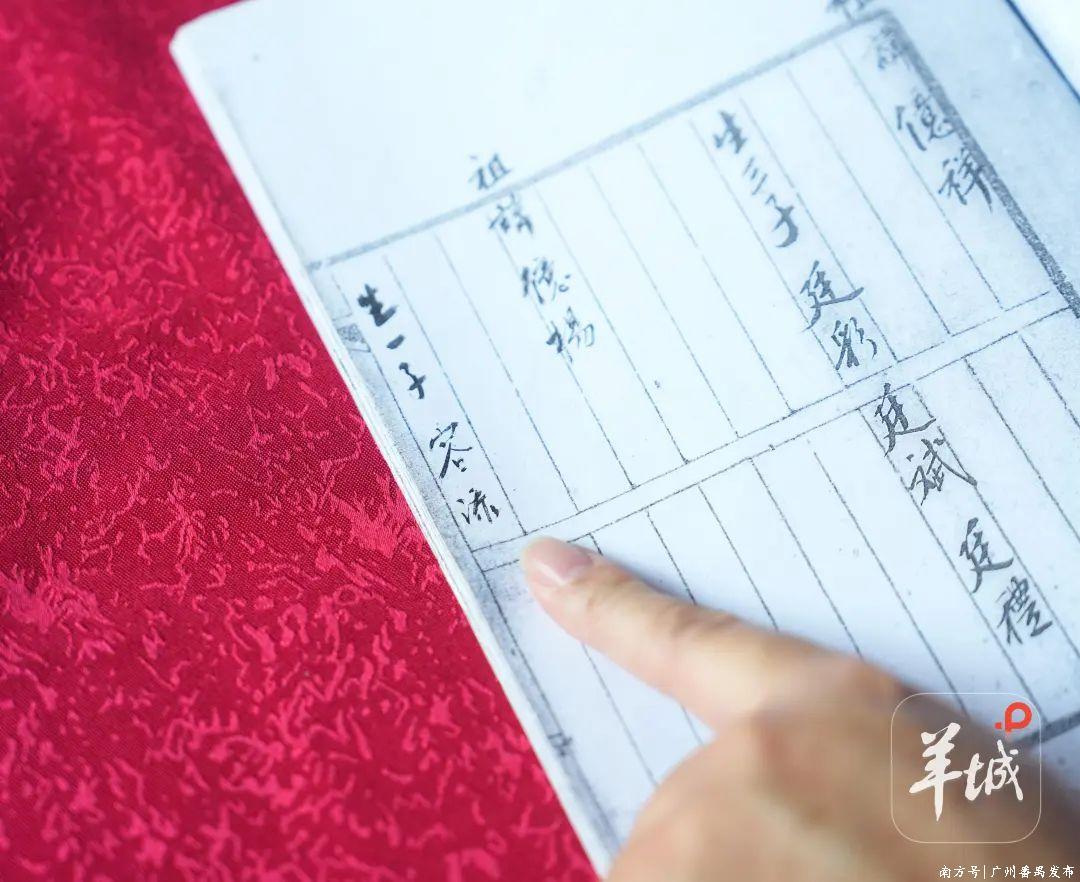 祖
諱億祥
生三子廷彩
廷斌廷禮
祖
諱億揚
生一子容添
羊城
南方号|广州番禺发布